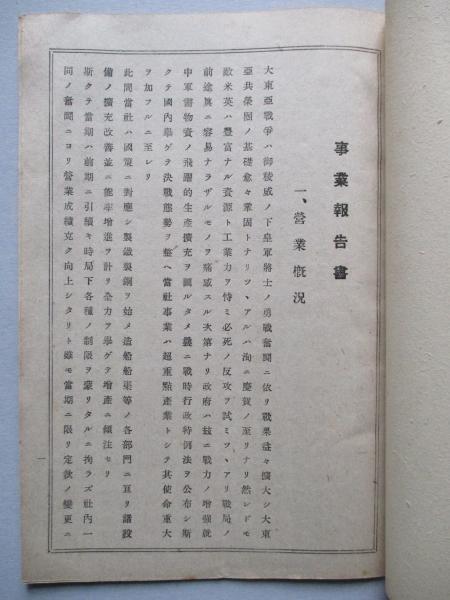 事業報告書
一、營業概況
大東亞戰爭ハ御稜威ノ下皇軍將士ノ勇戰奮鬪ニ依リ戰果益々擴大シ大東
亞共榮圈ノ基礎愈々鞏固トナリツヽアルハ洵ニ慶賀ノ至リナリ然レドモ
敵米英ハ豐富ナル資源ト工業力ヲ恃ミ必死ノ反攻ヲ試ミツヽアリ戰局ノ
前途眞ニ容易ナラザルモノヲ痛感スル次第ナリ政府ハ玆ニ戰力ノ增强就
中軍需物資ノ飛躍的生產擴充ヲ圖ルタメ曩ニ戰時行政特例法ヲ公布シ斯
クテ國內擧ゲテ決戰態勢ヲ整ヘ當社事業ハ超重點產業トシテ其使命重大
ヲ加フルニ至レリ
此間當社ハ國策ニ對應シ製鐵製鋼ヲ始メ造船船渠等ノ各部門ニ亘リ諸設
備ノ擴充改善並ニ能率增進ヲ計リ全力ヲ擧ゲテ增產ニ傾注セリ
斯クテ當期ハ前期ニ引續キ時局下各種ノ制限ヲ蒙リタルニ拘ラズ社內一
同ノ奮鬪ニヨリ營業成績克ク向上シタリト雖モ當期ニ限リ定款ノ變更ニ
一